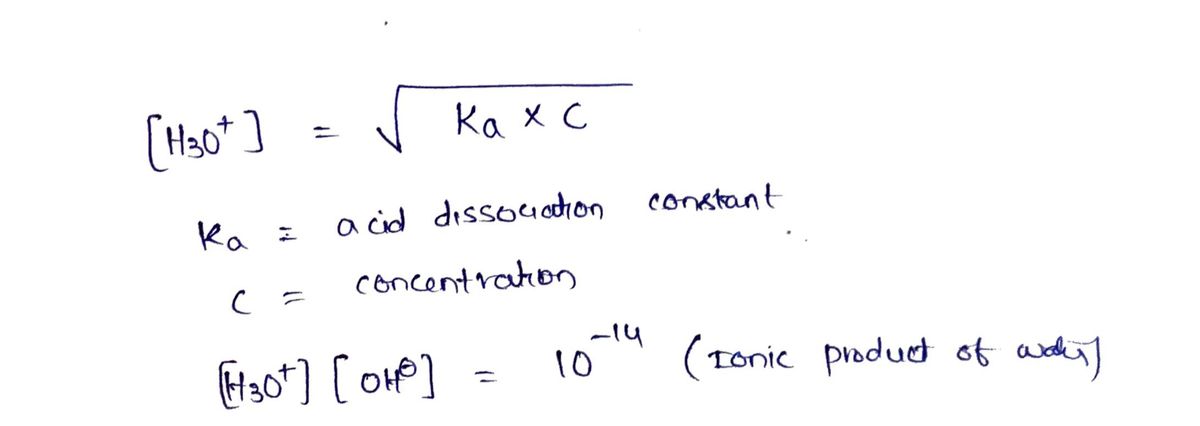 [H3O⁺] = √ Ka × C
Ka = acid dissociation constant
C = concentration
[H3O⁺] [OH⊖] = 10⁻¹⁴ (Ionic product of water)